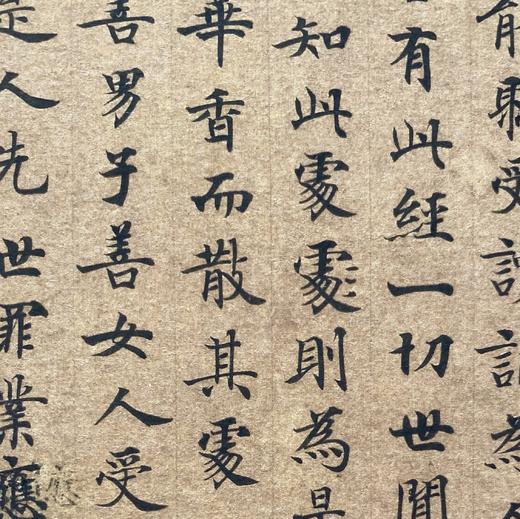 能聽受讀誦為
有此經一切世間
知此處處則為是
華香而散其處
善男子善女人受
是人先世罪業應
應